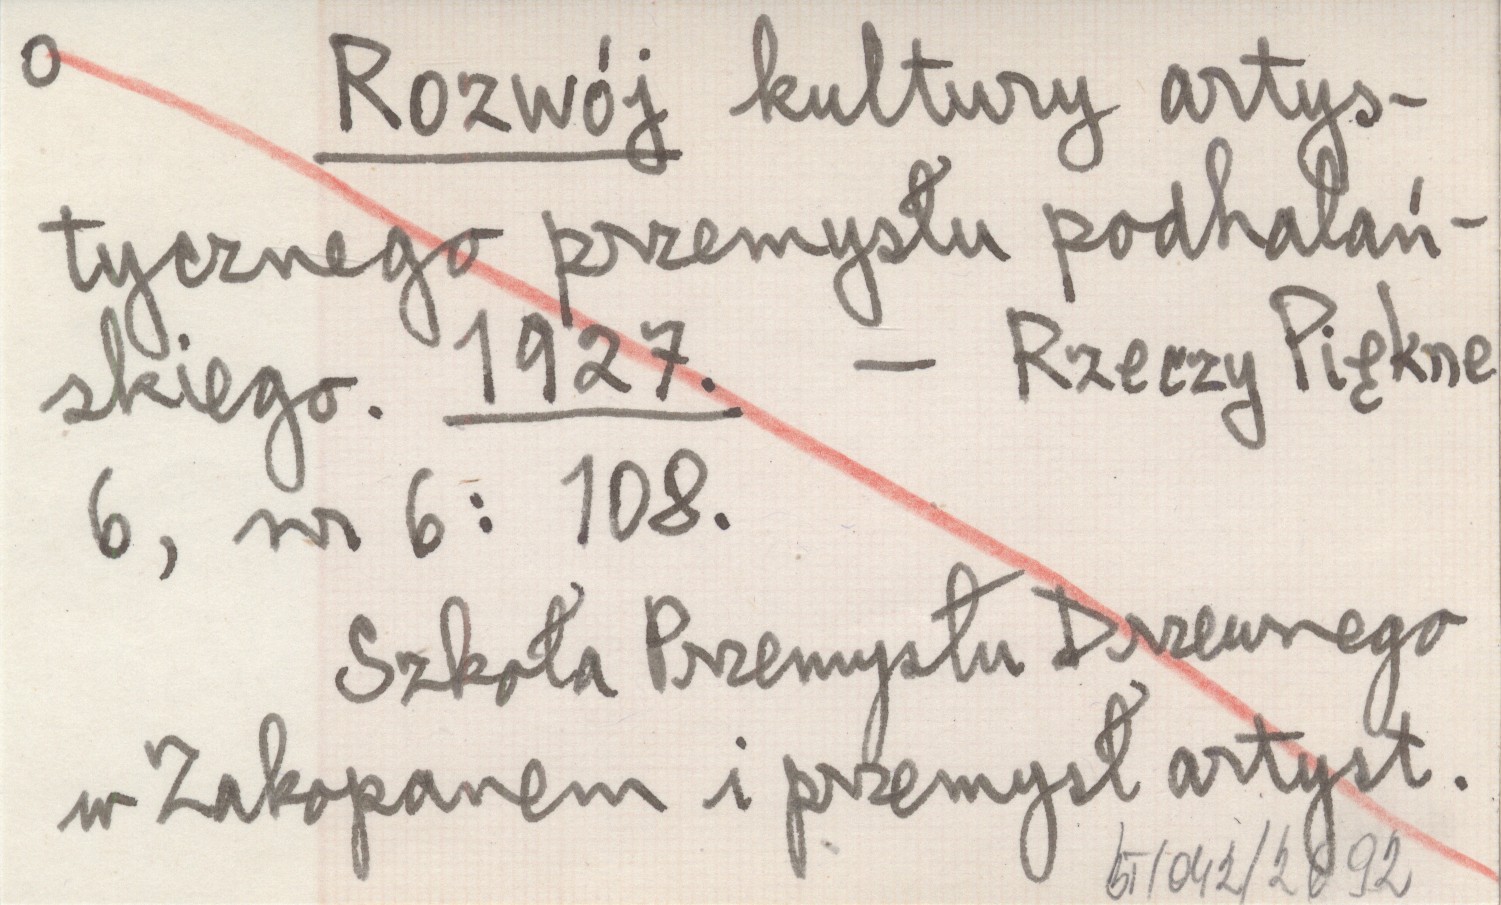 o Rozwój kultury artys-
tycznego przemysłu podhalań-
skiego. 1927. — Rzeczy Piękne
6, nr 6: 108.
Szkoła Przemysłu Drzewnego
w Zakopanem i przemysł artyst.